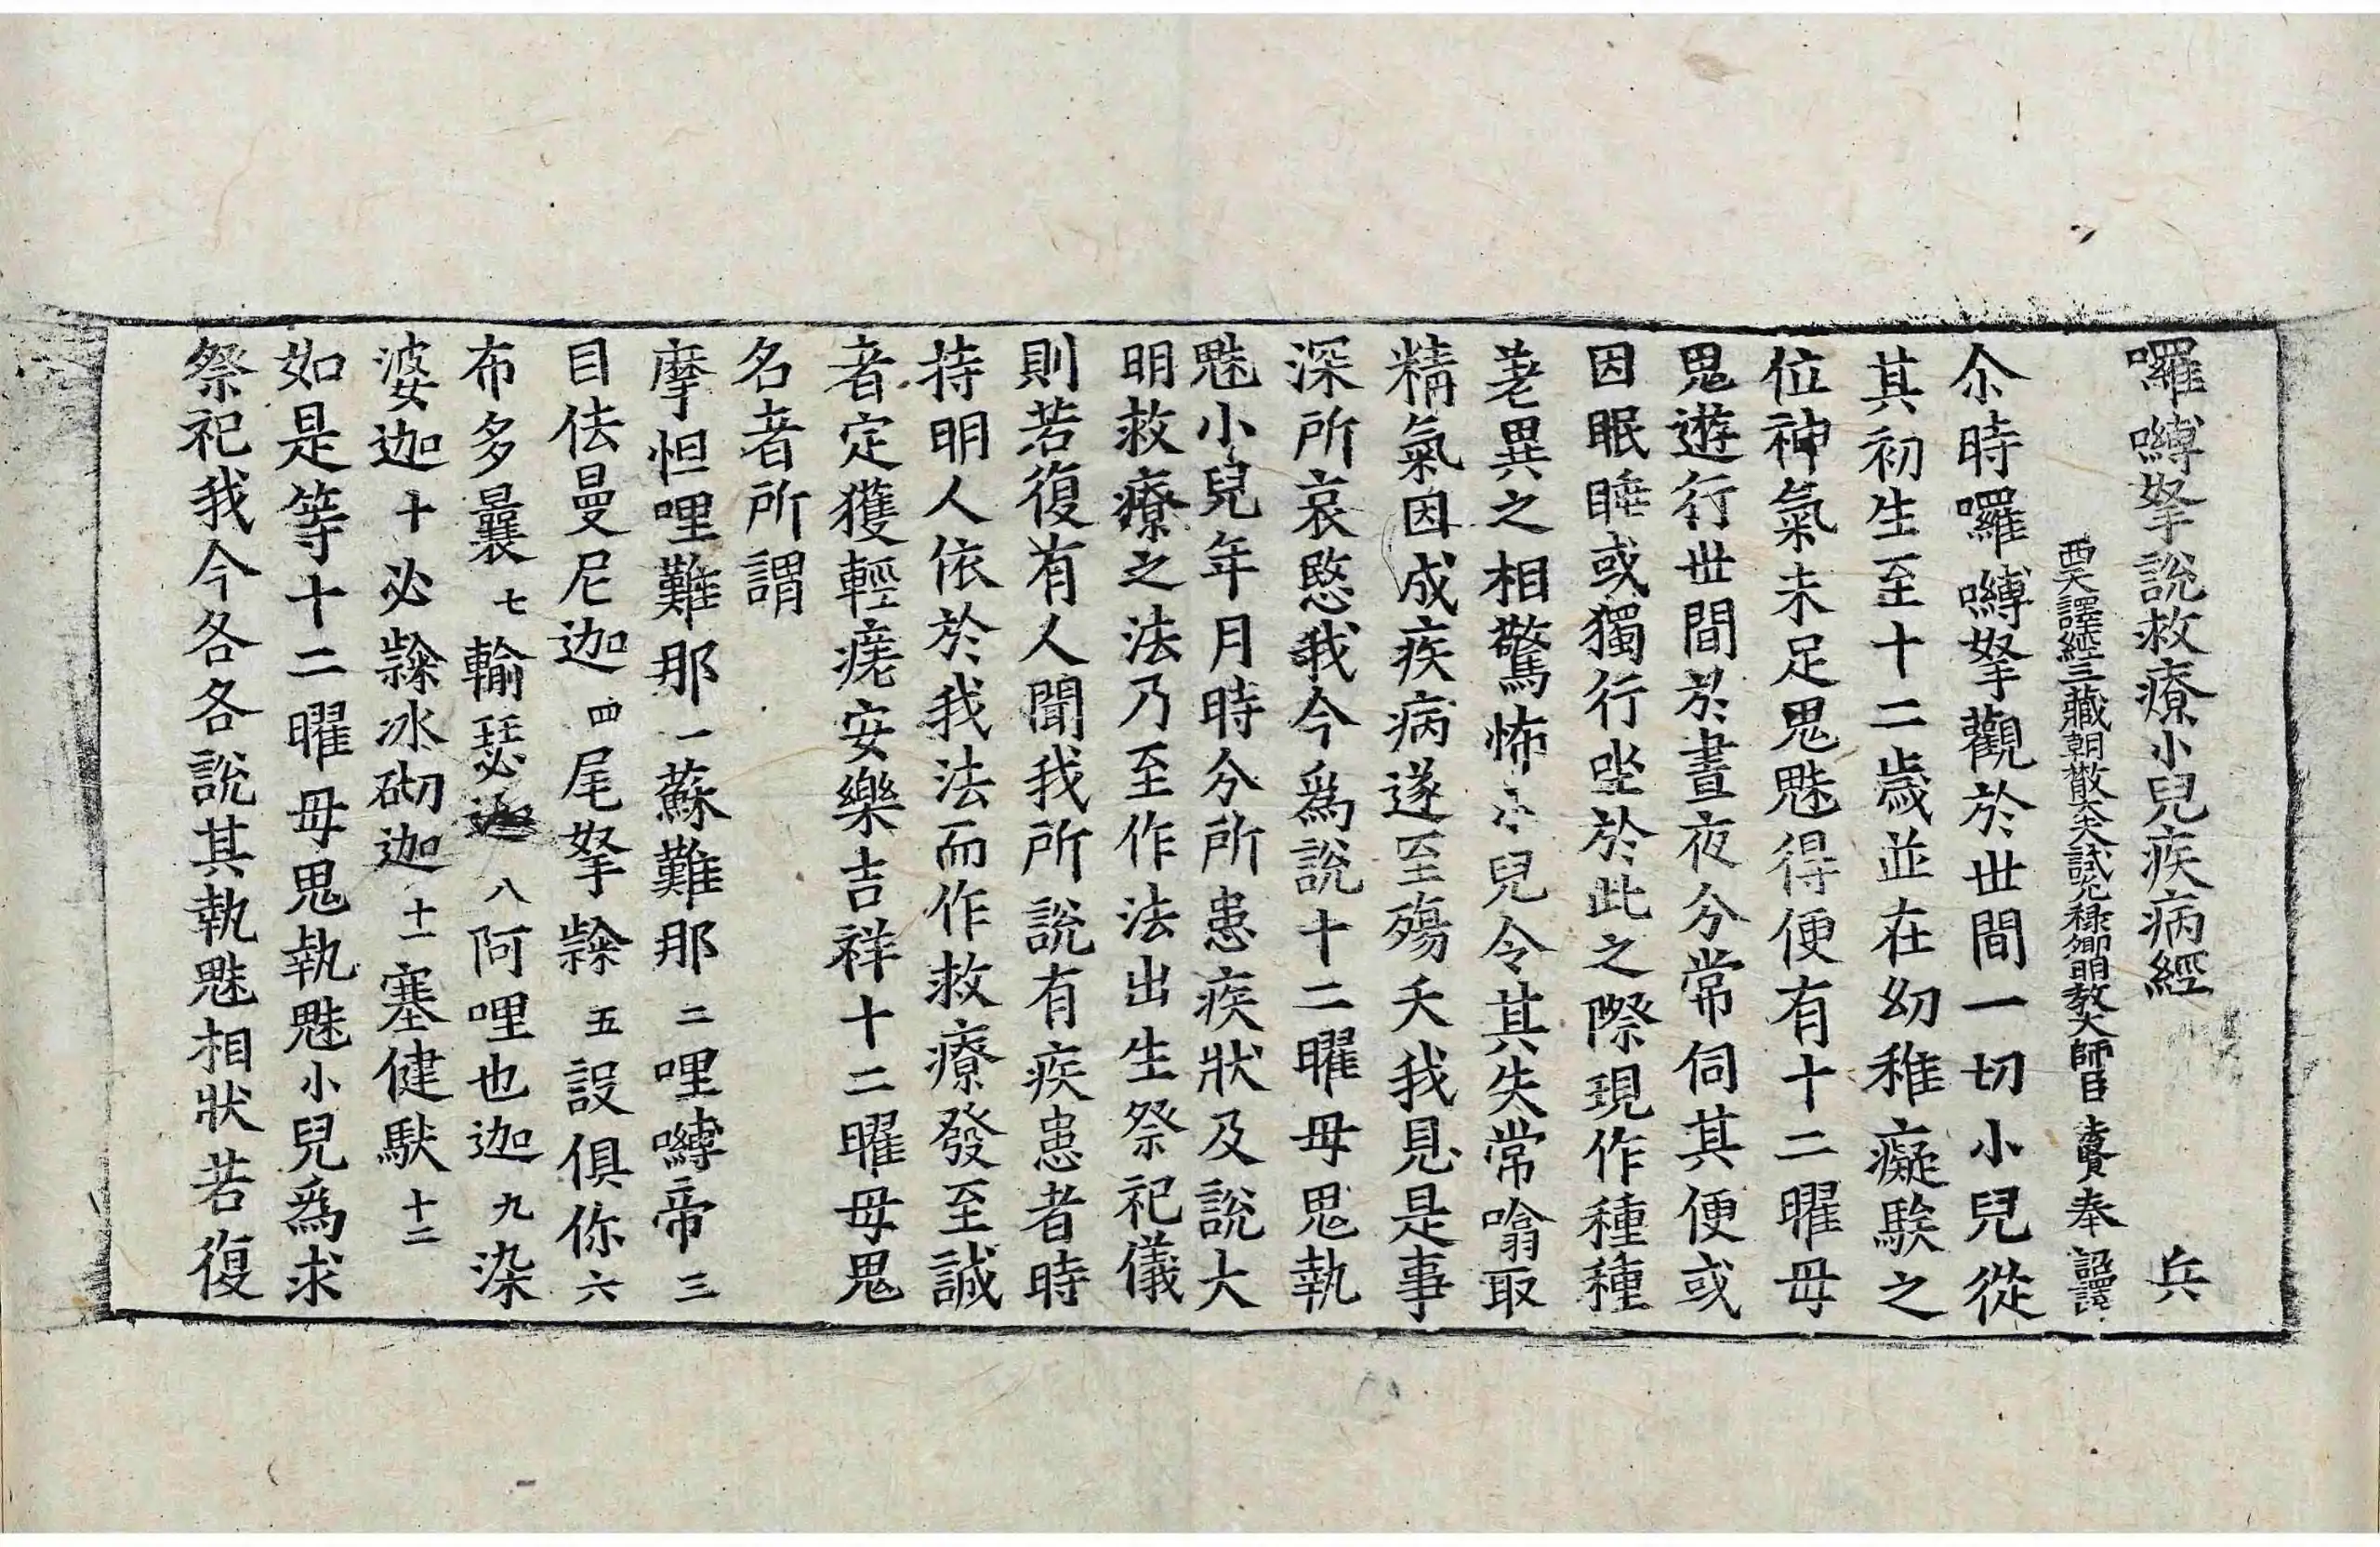 囉嚩拏說救療小兒疾病經 兵
西天譯經三藏朝散大夫試光祿卿明教大師臣法賢奉 詔譯
尒時囉嚩拏觀於世間一切小兒從
其初生至十二歲並在幼稚癡騃之
位神氣未足鬼魅得便有十二曜母
鬼遊行世間於晝夜分常伺其便或
因眠睡或獨行坐於此之際現作種種
差異之相驚怖小兒令其失常噏取
精氣因成疾病遂至殤夭我見是事
深所哀愍我今爲說十二曜母鬼執
魅小兒年月時分所患疾狀及說大
明救療之法乃至作法出生祭祀儀
則若復有人聞我所說有疾患者時
持明人依於我法而作救療發至誠
者定獲輕瘥安樂吉祥十二曜母鬼
名者所謂
摩怛哩難那 一 蘇難那 二 哩嚩帝 三
目佉曼尼迦 四 尾拏隸 五 設俱你 六
布多曩 七 輸瑟迦 八 阿哩也迦 九 染
婆迦 十 必隸冰砌迦 十一 塞健馱 十二
如是等十二曜母鬼執魅小兒爲求
祭祀我今各各說其執魅相狀若復